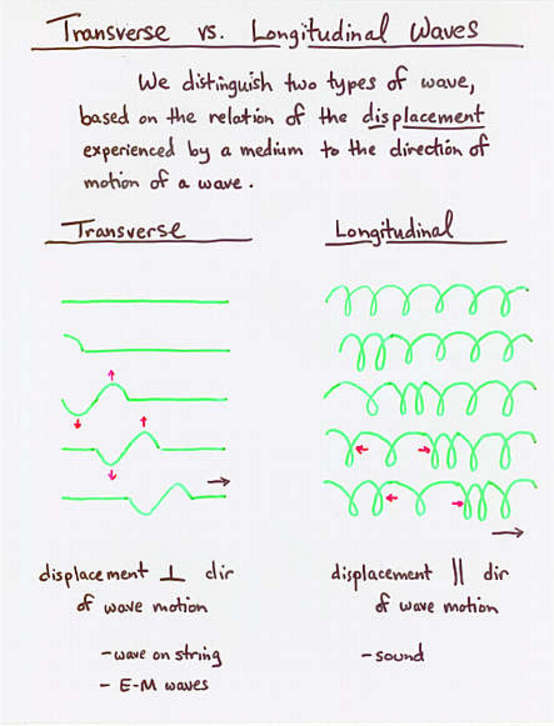 Transverse vs. Longitudinal Waves
We distinguish two types of wave,
based on the relation of the displacement
experienced by a medium to the direction of
motion of a wave.
Transverse
Longitudinal
displacement ⊥ dir
of wave motion
-wave on string
- E-M waves
displacement || dir
of wave motion
-sound